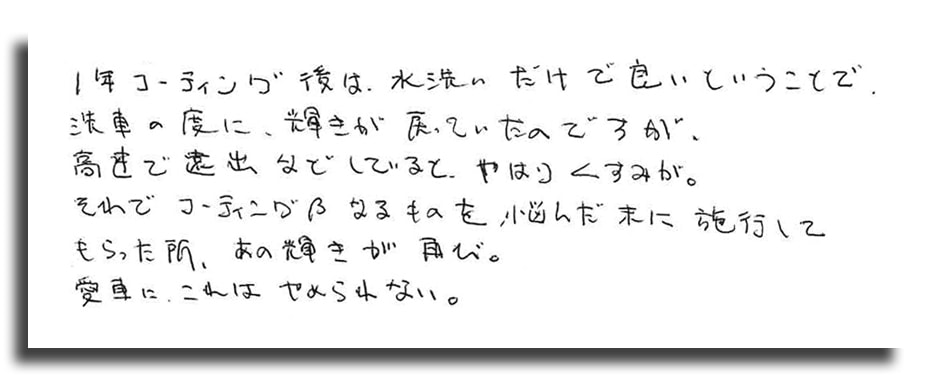 1年コーティング後は、水洗いだけで良いということで、
洗車の度に、輝きが戻っていたのですが、
高速で遠出などしていると、やはりくすみが。
それでコーティングβなるものを、悩んだ末に施行して
もらった所、あの輝きが再び。
愛車に、これはやめられない。